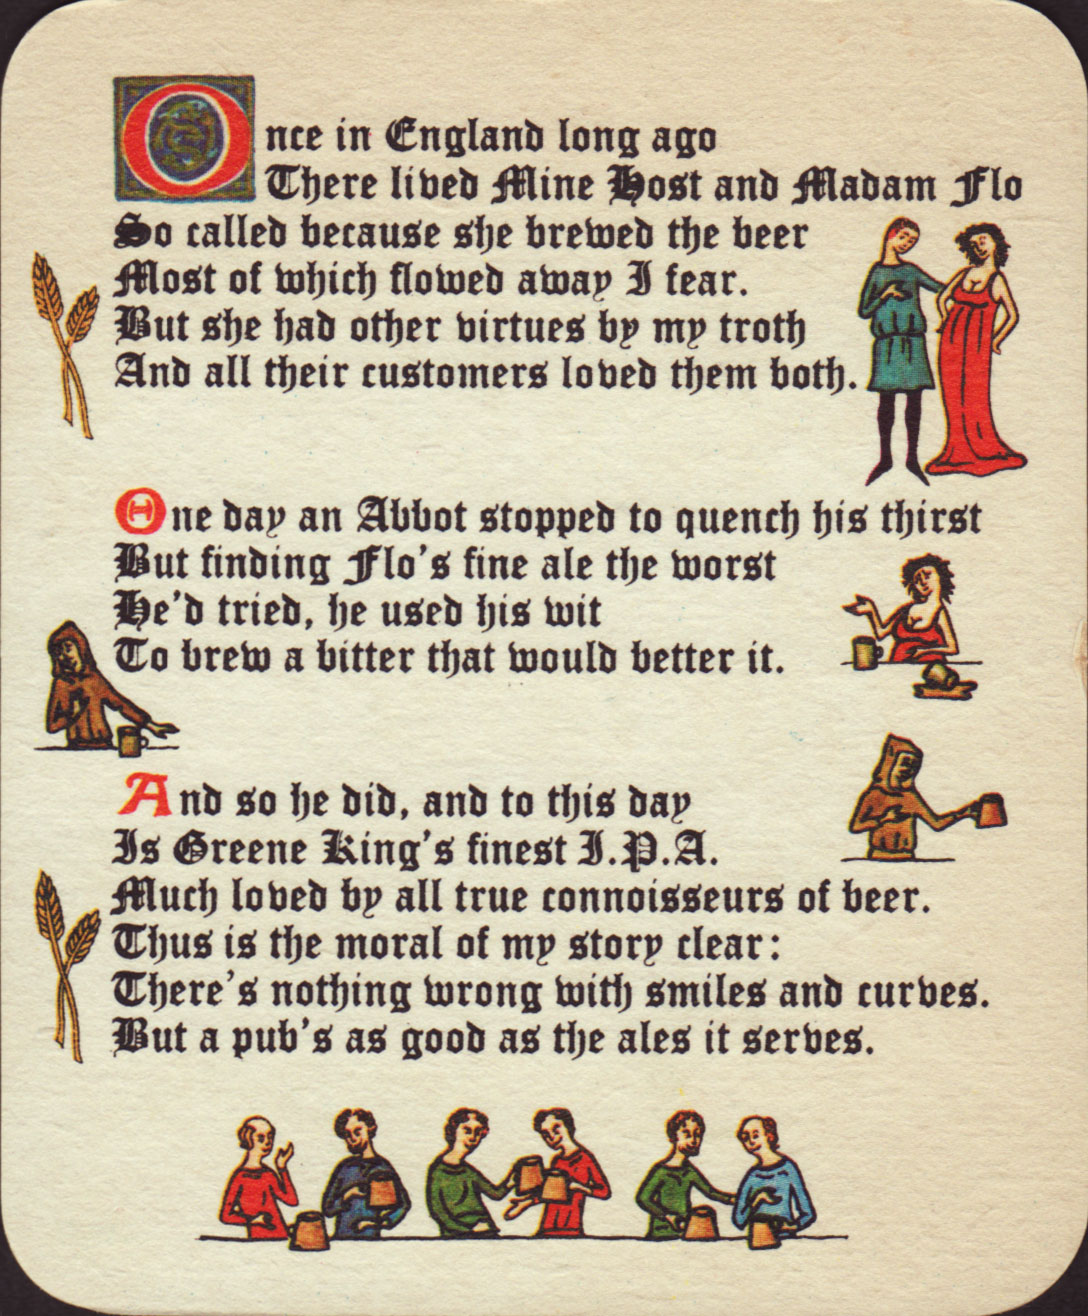 Once in England long ago
There lived Mine Host and Madam Flo
So called because she brewed the beer
Most of which flowed away I fear.
But she had other virtues by my troth
And all their customers loved them both.
One day an Abbot stopped to quench his thirst
But finding Flo's fine ale the worst
He'd tried, he used his wit
To brew a bitter that would better it.
And so he did, and to this day
Is Greene King's finest I.P.A.
Much loved by all true connoisseurs of beer.
Thus is the moral of my story clear:
There's nothing wrong with smiles and curves.
But a pub's as good as the ales it serves.